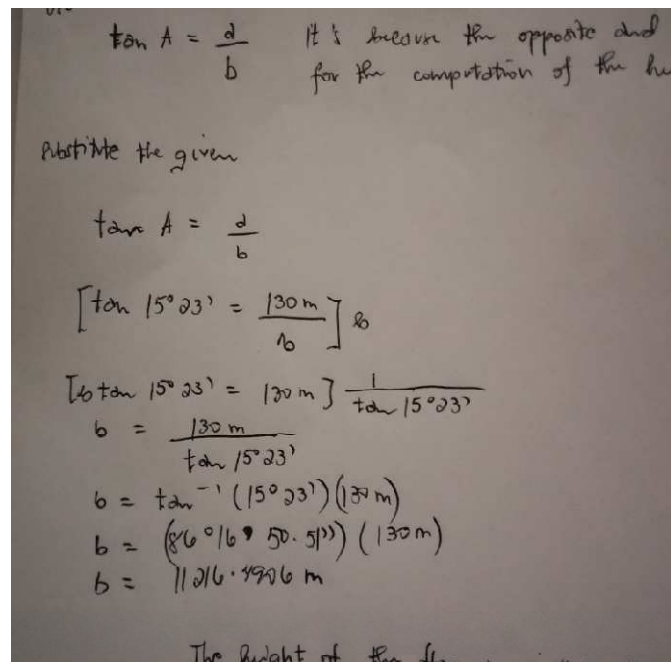 tan A = a/b It's because the opposite and
for the computation of the
Substitute the given
tan A = a/b
[tan 15° 23' = 130 m/b] b
[b tan 15° 23' = 130 m] 1/tan 15° 23'
b = 130 m/tan 15° 23'
b = tan⁻¹ (15° 23') (130 m)
b = (86° 16' 50.51'') (130 m)
b = 11216.4906 m
The height of the